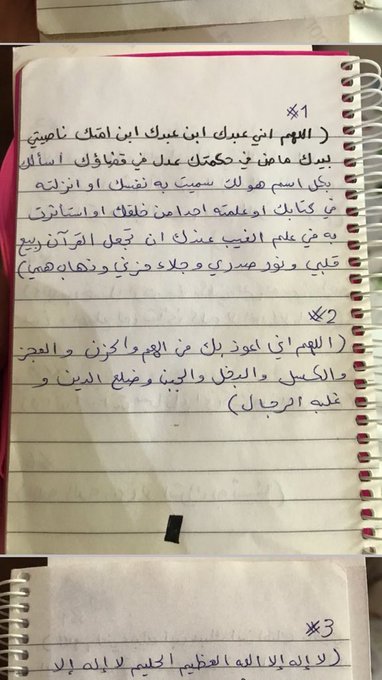 #1
( اللهم اني عبدك ابن عبدك ابن امتك ناصيتي
بيدك ماضن في حكمتك عدل في قضاؤك أسألك
بكل اسم هو لك سميت به نفسك او انزلته
في كتابك او علمته احدا من خلقك او استأثرت
به في علم الغيب عندك ان تجعل القرآن ربيع
قلبي ونور صدري وجلاء حزني وذهاب همي)
#2
( اللهم اني اعوذ بك من الهم والحزن والعجز
والكسل والبخل والجبن وضلع الدين و
غلبه الرجال)
#3
( لا إله إلا الله العظيم الحليم لا إله إلا